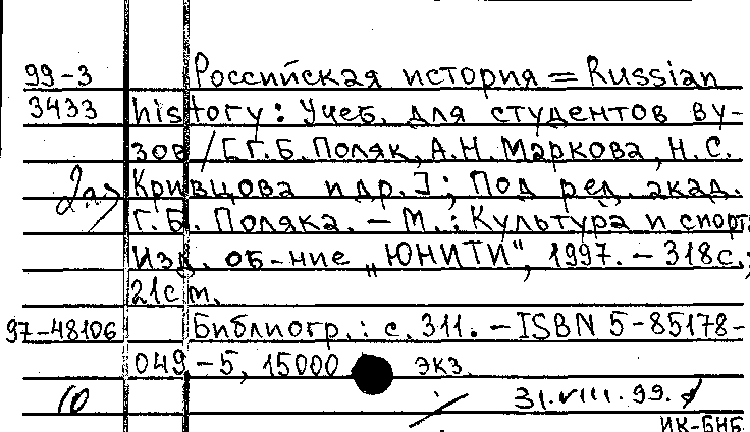 99-3 Российская история = Russian
3433 history: Учеб. для студентов ву-
зов / [Г.Б. Поляк, А.Н. Маркова, Н.С.
Кривцова и др.]; Под ред. акад.
Г.Б. Поляка. – М.: Культура и спорт:
Изд. об-ние „ЮНИТИ", 1997. – 318с.;
21cm.
97-48106 Библиогр.: с. 311. – ISBN 5-85178-
049-5, 15000 экз.
10 31.VIII.99.
ИК-БНБ